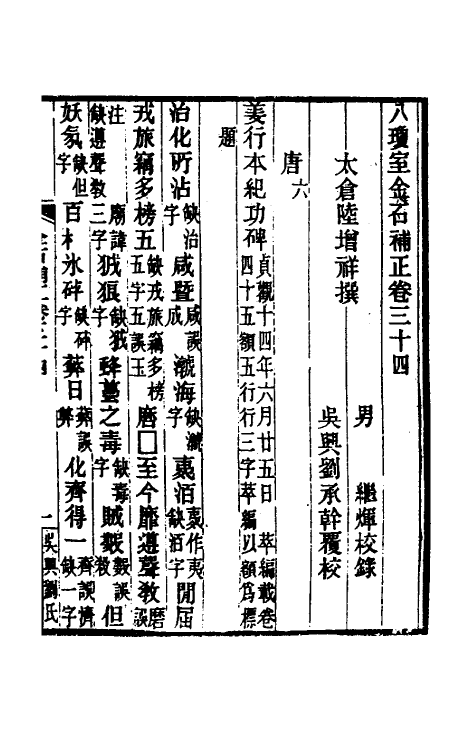 八瓊室金石補正卷三十四
太倉陸增祥撰
男　繼煇校錄
吳興劉承幹覆校
唐六
姜行本紀功碑貞觀十四年六月廿五日　萃編載卷四十五額五行行三字萃編以額爲標
題
治化所沾缺治字咸暨咸誤成瀚海缺瀚字裵洦裵作夷缺洦字閒屆
戎旅竊多榜五缺戎旅竊多榜字五誤玉磨□至今靡遵聲敎磨誤
注缺遵聲敎三字廟諱狘狼缺狘字蜂蠆之毒缺毒字賊毅毅誤敎但
妖氛缺但字百㧊氷碎缺碎字蓂日蓂誤蓂化齊得一齊誤濟缺一字
一
吳興劉氏